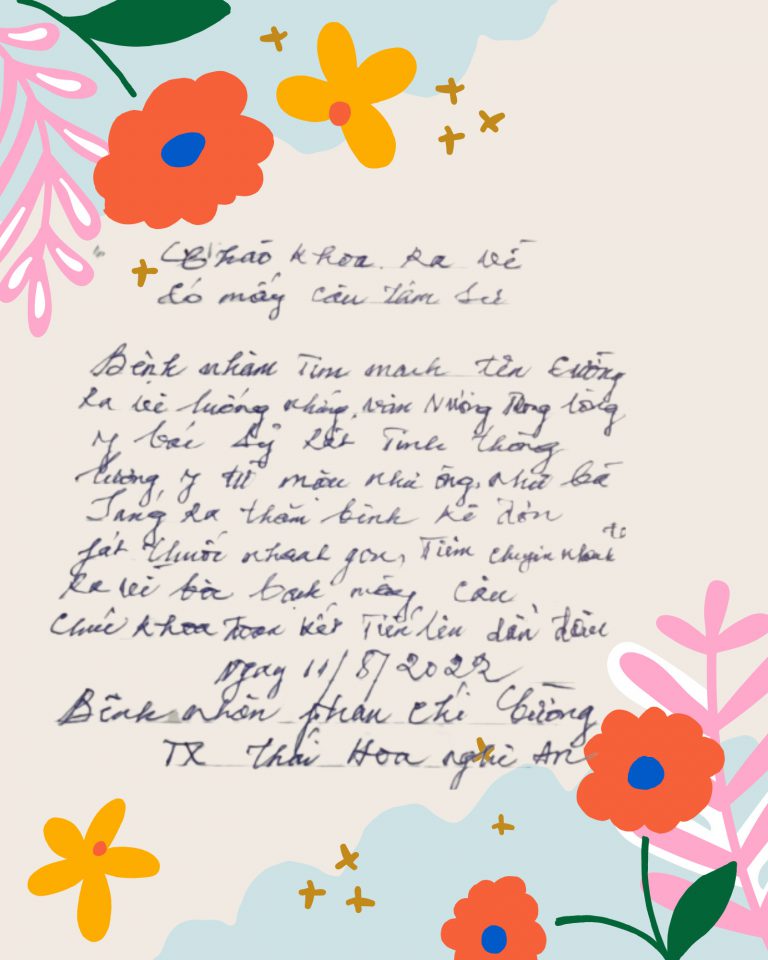 Chào khoa ra về
có mấy câu tâm sự
Bệnh nhân Tim mạch tên Cường
Ra về luống những vấn Vương Trong lòng
y bác sỹ rất Tinh thông
lương y từ mẫu như ông, như bà
Sáng ra thăm bệnh kê đơn
fát thuốc nhanh gọn, Tiêm chuyền nhanh
Ra về bà bạch mấy Câu
Chúc khoa Đoàn kết Tiến lên dẫn đầu
Ngày 11/8/2022
Bệnh nhân phan chí Cường
TX Thái Hoà nghệ An